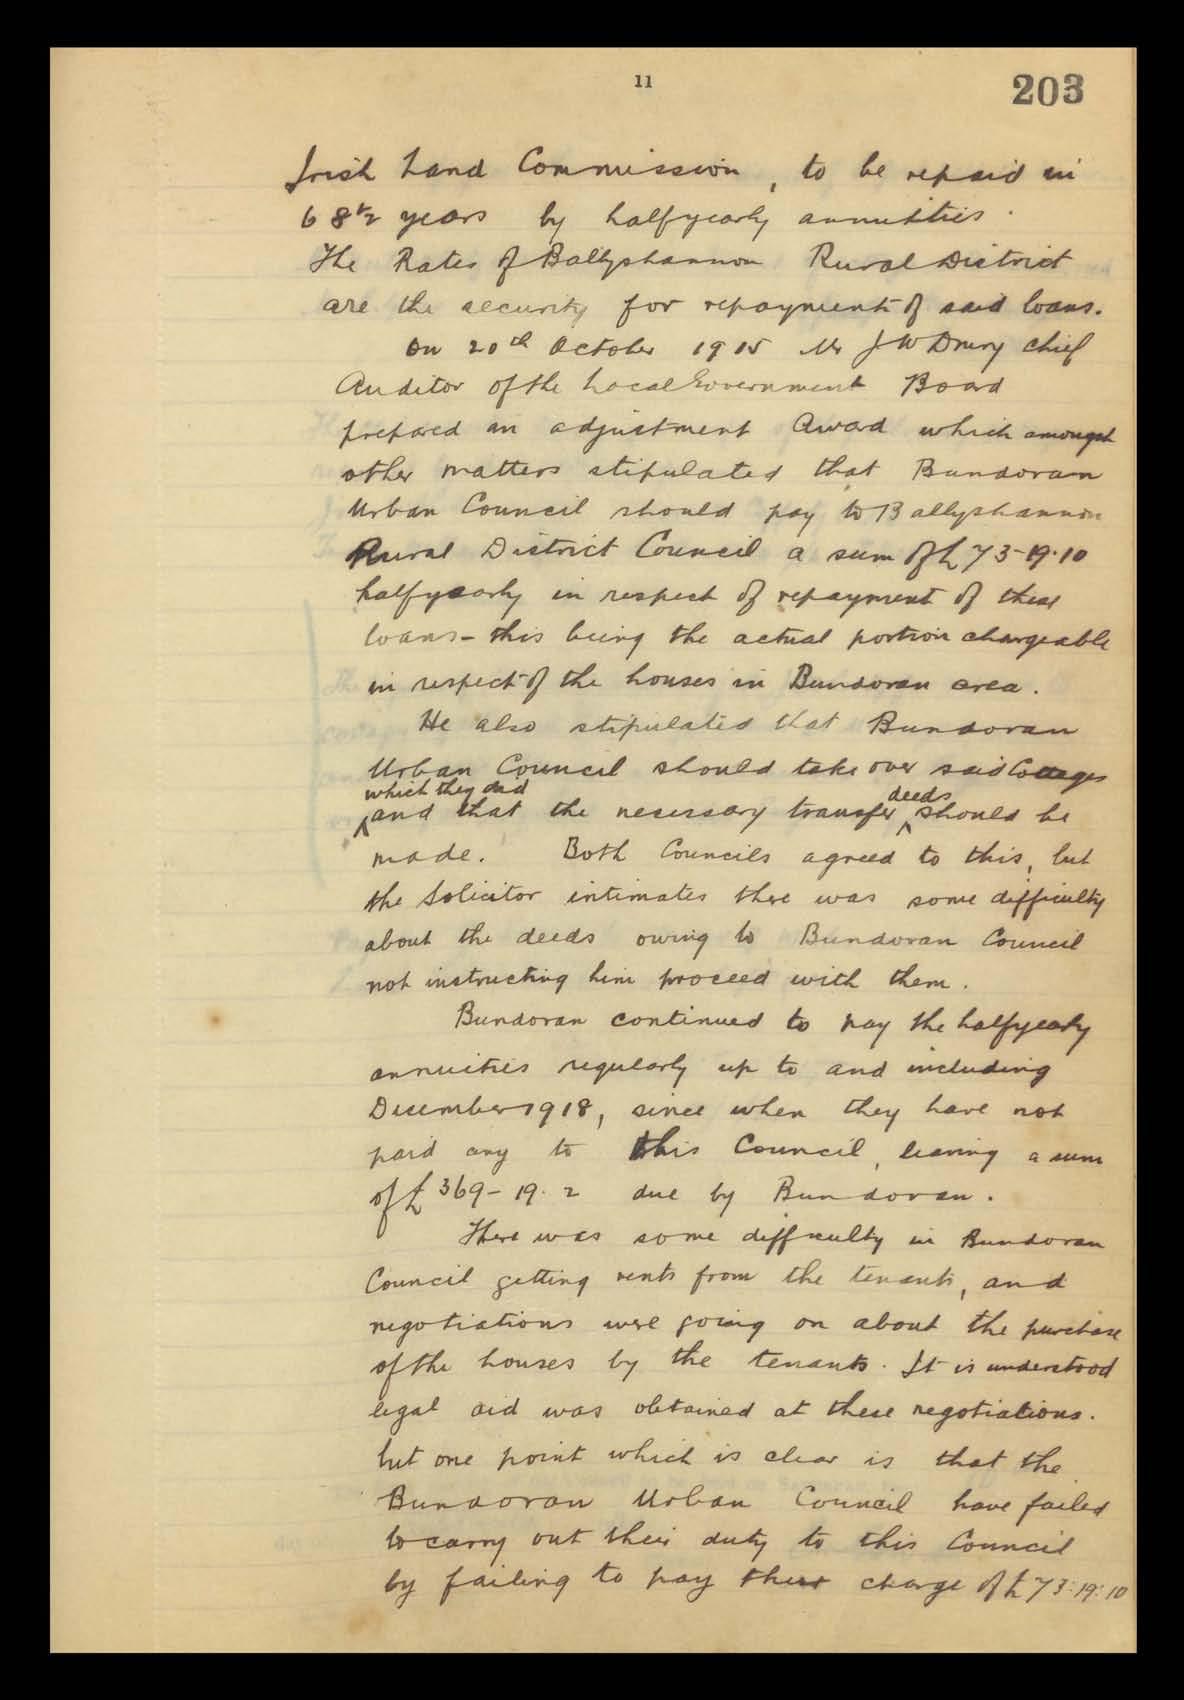 11
203
Irish Land Commission, to be repaid in
68½ years by halfyearly annuities.
The Rates of Ballyshannon Rural District
are the security for repayment of said loans.
On 20th October 1915 Mr J W Drury Chief
Auditor of the Local Government Board
prepared an adjustment Award which amongst
other matters stipulated that Bundoran
Urban Council should pay to Ballyshannon
Rural District Council a sum of £73-19-10
halfyearly in respect of repayment of these
loans - this being the actual portion chargeable
in respect of the houses in Bundoran area.
He also stipulated that Bundoran
Urban Council should take over said Cottages
which they did deeds
and that the necessary transfer should be
made. Both Councils agreed to this, but
the Solicitor intimates there was some difficulty
about the deeds owing to Bundoran Council
not instructing him proceed with them.
Bundoran continued to pay the halfyearly
annuities regularly up to and including
December 1918, since when they have not
paid any to this Council, leaving a sum
of £369-19-2 due by Bundoran.
There was some difficulty in Bundoran
Council getting rents from the tenants, and
negotiations were going on about the purchase
of the houses by the tenants. It is understood
legal aid was obtained at these negotiations.
but one point which is clear is that the
Bundoran Urban Council have failed
to carry out their duty to this Council
by failing to pay their charge of £73:19:10